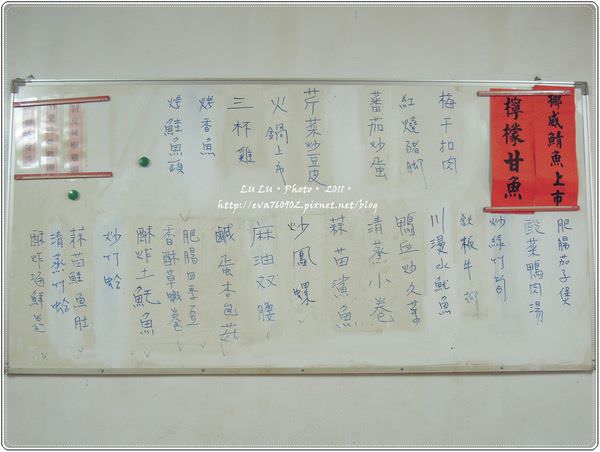 挪威鯖魚上市
檸檬甘魚
梅干扣肉
紅燒豬腳
蕃茄炒蛋
芹菜炒豆皮
火鍋上市
三杯雞
烤香魚
烤鮭魚頭
肥腸茄子煲
酸菜鴨肉湯
炒綠竹筍
鉄板牛柳
川燙水魷魚
鴨血炒久菜
清蒸小卷
蒜苗鯊魚
炒鳳螺
麻油双腰
鹹蛋杏包菇
肥腸四季豆
香酥草蝦卷
酥炸土魠魚
炒竹蛤
蒜苗鮭魚肚
清蒸竹蛤
酥炸海鮮卷
LU LU · PHOTO · 2011 ·
http://eva760902.pixnet.net/blog